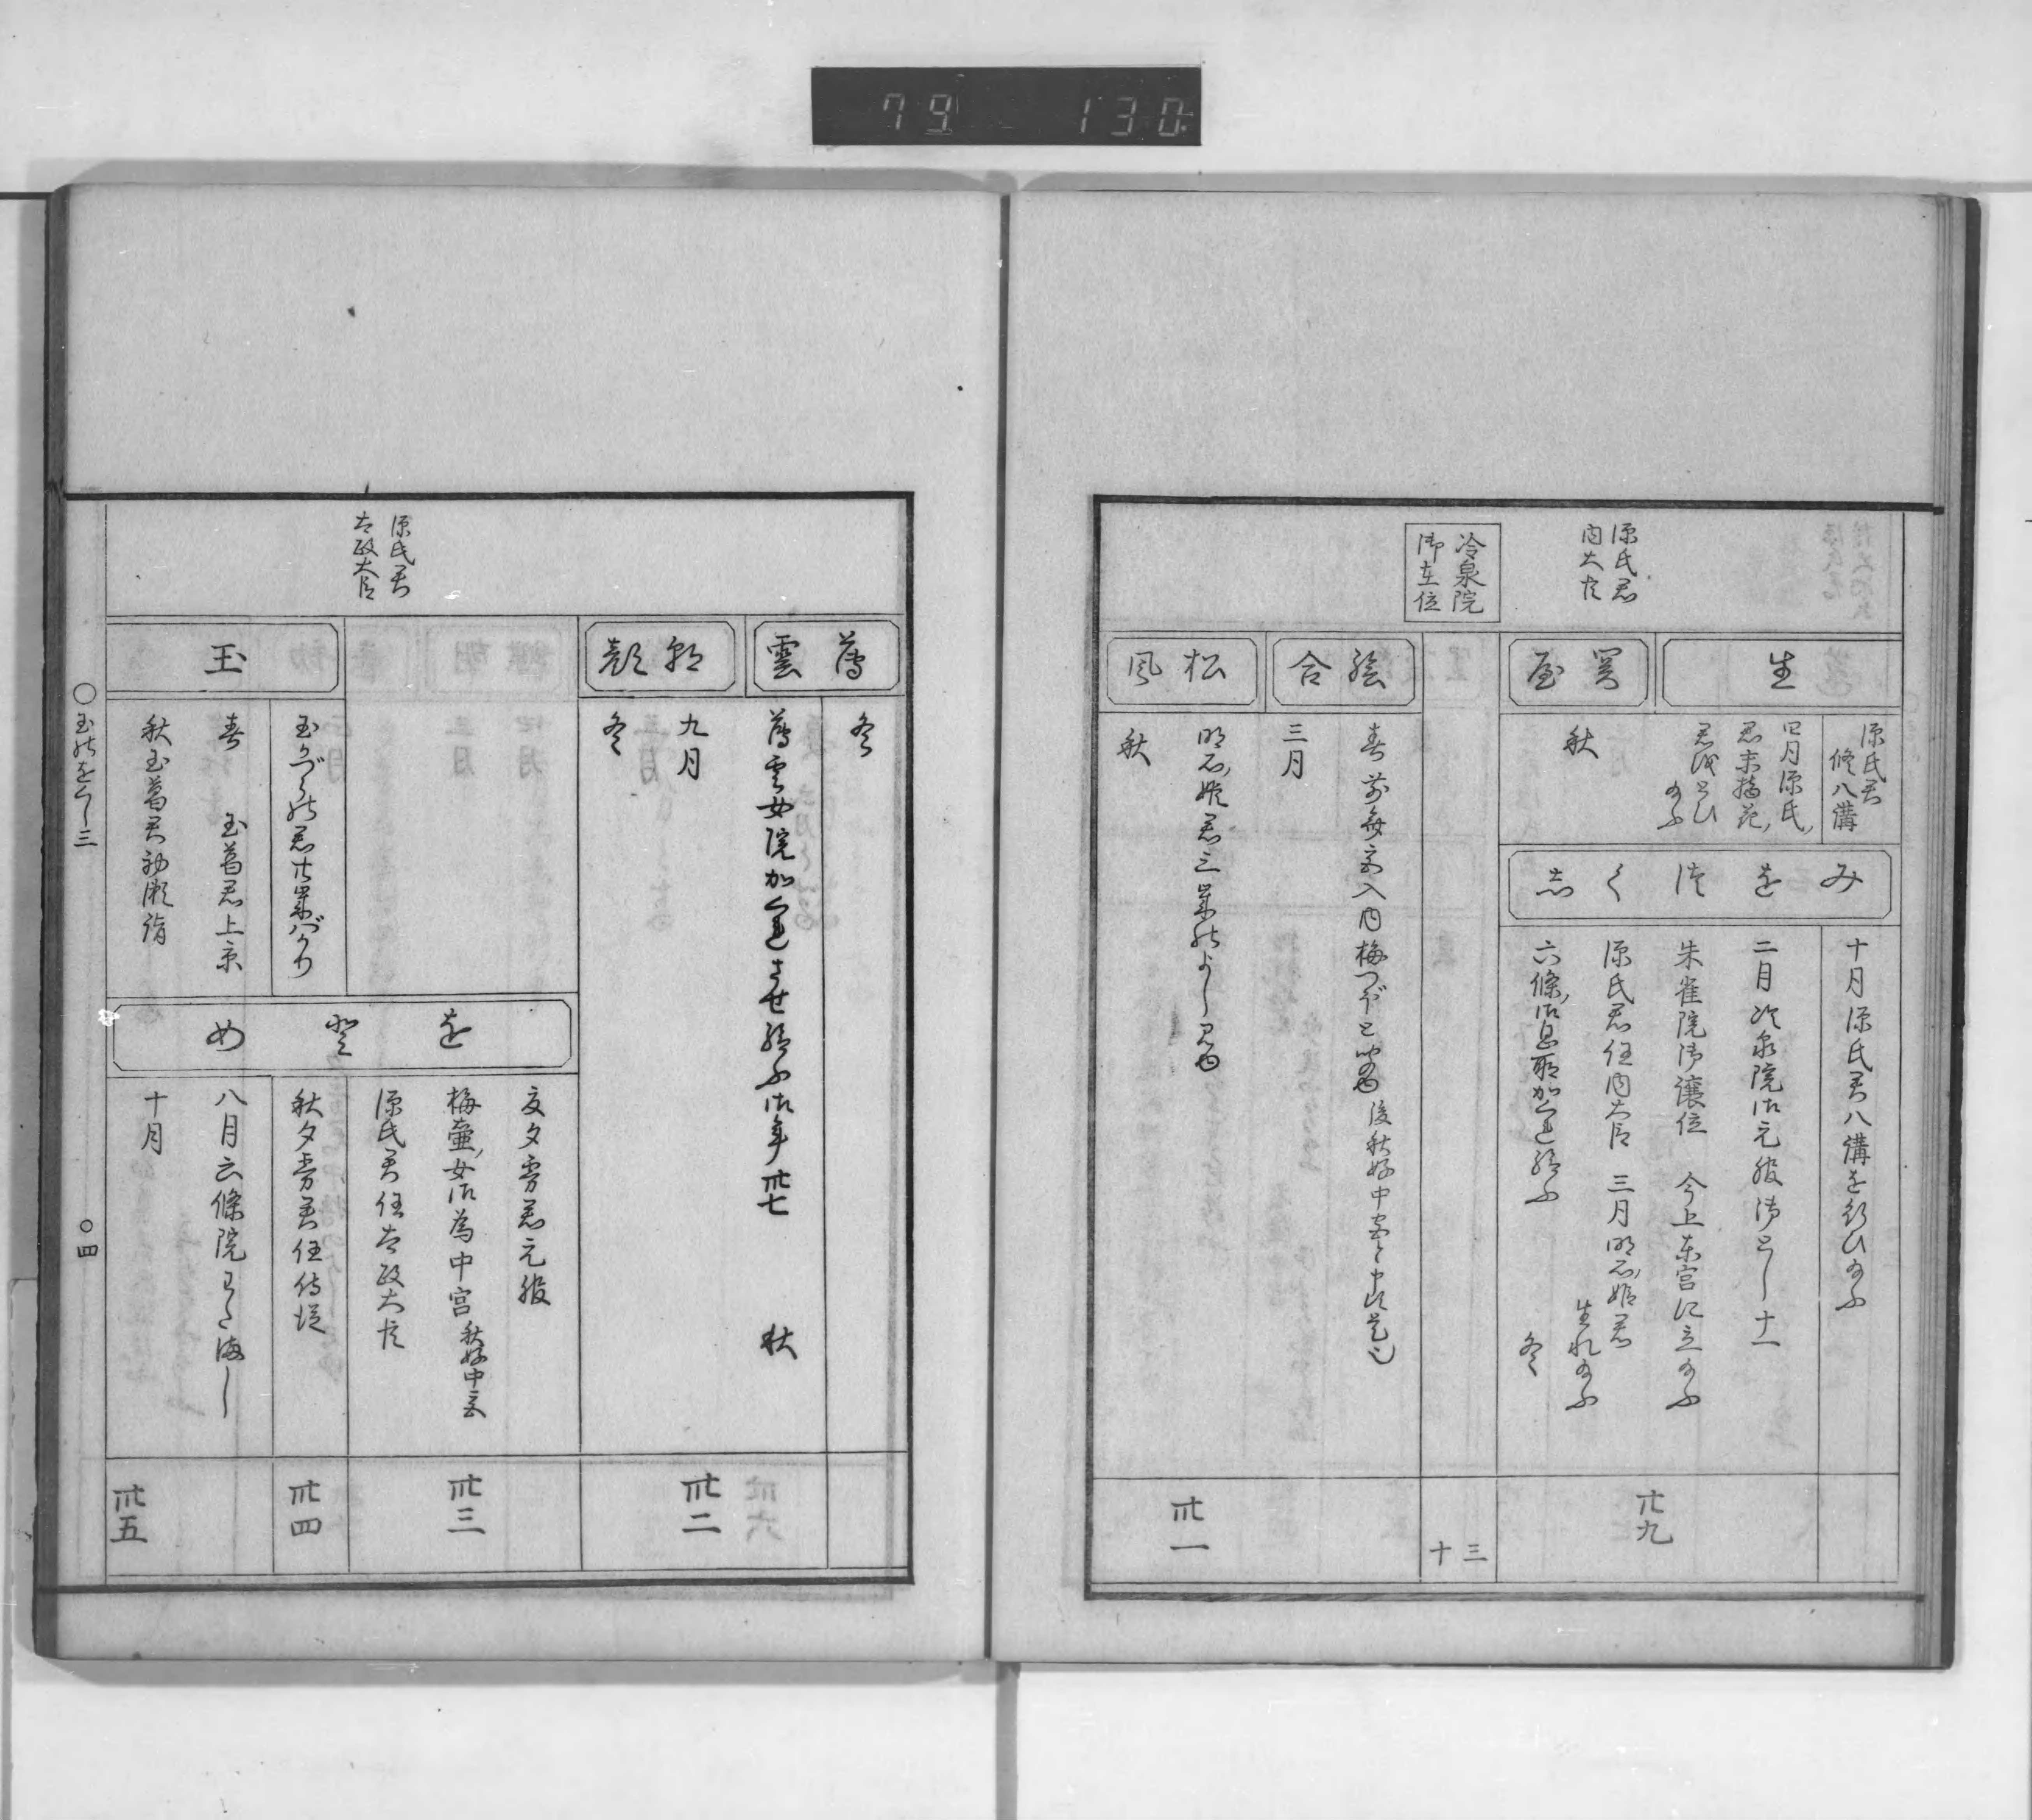 79 130
源氏君
内大臣
冷泉院
御在位
生
源氏君
修八溝
四月源氏
君末摘花
君をとひ
給ふ
関屋
秋
みをつくし
十月源氏君八溝を行ひ給ふ
二月冷泉院御元服御とし十一
朱雀院御譲位 今上東宮に立給ふ
源氏君任内大臣 三月明石姫君
生れ給ふ
六條御息所かくれ給ふ 冬
廿九
三十
絵合
春 前斎宮入内梅つぼと聞ゆ 後秋好中宮と申は是也
三月
松風
明石姫君三歳のよし見ゆ
秋
卅一
源氏君
太政大臣
薄雲
冬
薄雲女院かくれさせ給ふ御年卅七 秋
朝顔
九月
冬
卅二
をとめ
夏夕霧君元服
梅壷女御為中宮 秋好中宮
源氏君任太政大臣
卅三
秋夕霧君任侍従
卅四
八月六條院わたまし
十月
卅五
玉
玉かづらの君廿歳ばかり
春 玉葛君上京
秋玉葛君初瀬詣
○玉のをぐし三 ○四